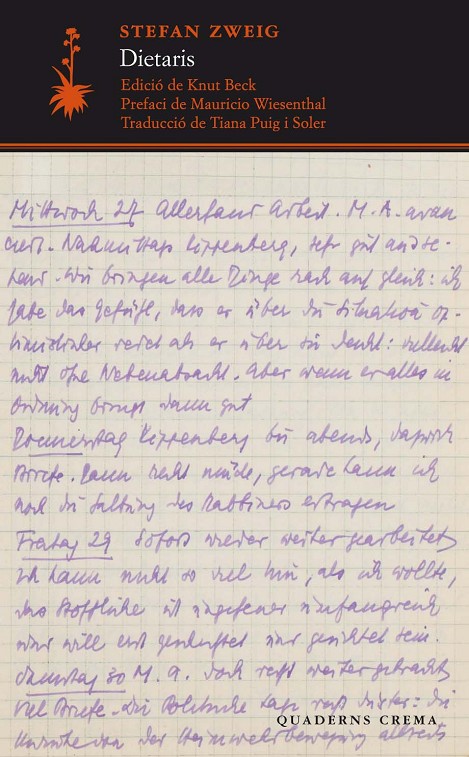 STEFAN ZWEIG
Dietaris
Edició de Knut Beck
Prefaci de Mauricio Wiesenthal
Traducció de Tiana Puig i Soler
Mittwoch 27 Allerhand Arbeit. M. A. avan
ciert. Nachmittags Kippenberg, sehr gut ausse-
hend. Wir bringen alle Dinge rasch auf gleich: ich
habe das Gefühl, dass er über die Situation op-
timistischer redet als er über sie denkt: vielleicht
nicht ohne Nebenabsicht. Aber wenn er alles in
Ordnung bringt dann gut
Donnerstag Kippenberg bis abends, dazwisch
Briefe. Dann recht müde, gerade kann ich
noch die des Rabbiners ertragen
Freitag 29 Sofort wieder weitergearbeitet
Ich kann nicht so viel hin, als ich wollte,
das Stoffliche ist ungeheuer umfangreich
und will erst gesichtet sein.
Samstag 30 M. A. doch recht weitergebracht
viel Briefe. Die Politische Lage recht düster: die
der Heimwehrbewegung
QUADERNS CREMA